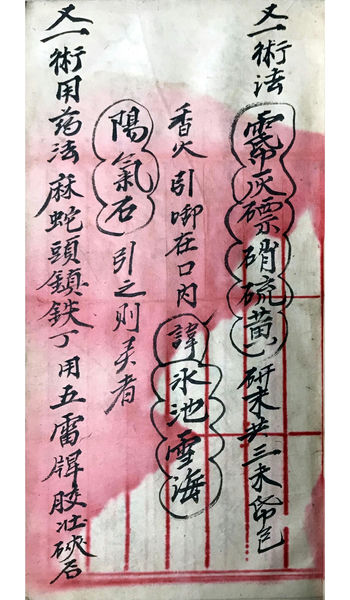 又一術法灰磦硝硫黄研末共三末帋包
香火引啣在口内諱氷池雪海
陽氣石引之則灵者
又一術用药法麻蛇頭鎮鉄丁用五雷牌胶壮硤石